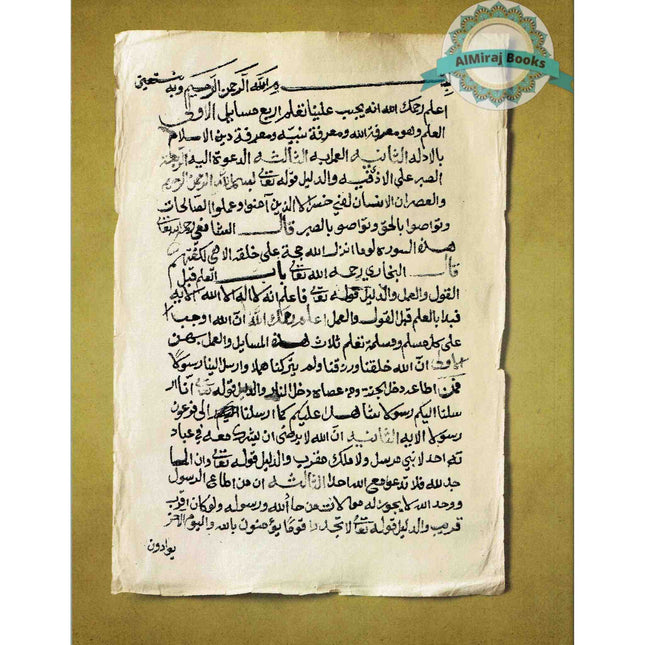 AlMiraj Books
بسم الله الرحمن الرحيم وبه نستعين
اعلم رحمك الله انه يجب علينا تعلم اربع مسايل الاولى
العلم وهو معرفة الله ومعرفة نبيه ومعرفة دين الاسلام
بالادله الثانيه العمل به الثالثه الدعوة اليه الرابعة
الصبر على الاذى فيه والدليل قوله تعالى بسم الله الرحمن الرحيم
والعصر ان الانسان لفي خسر الا الذين آمنوا وعملوا الصالحات
وتواصوا بالحق وتواصوا بالصبر قال الشافعي رحمه الله تعالى
هذه السوره لو ما انزل الله حجة على خلقه الا هي لكفتهم
قال البخاري رحمه الله تعالى باب العلم قبل
القول والعمل والدليل قوله تعالى فاعلم انه لا اله الا الله الايه
فبدا بالعلم قبل القول والعمل اعلم رحمك الله ان الله اوجب
على كل مسلم ومسلمة تعلم ثلاث هذه المسايل والعمل بهن
الاولى ان الله خلقنا ورزقنا ولم يتركنا هملا وارسل الينا رسولا
فمن اطاعه دخل الجنة ومن عصاه دخل النار والدليل قوله تعالى انا ار
سلنا اليكم رسولا شاهدا عليكم كما ارسلنا الى فرعون
رسولا الايه الثانيه ان الله لا يرضى ان يشرك معه في عباد
ته احد لا نبي مرسل ولا ملك مقرب والدليل قوله تعالى وان المسا
جد لله فلا تدعوا مع الله احدا الثالثه ان من اطاع الرسول
ووحد الله لا يجوز له موالات من حاد الله ورسوله ولو كان اقرب
قريب والدليل قوله تعالى لا تجد قوما يؤمنون بالله واليوم الاخر
يوادون